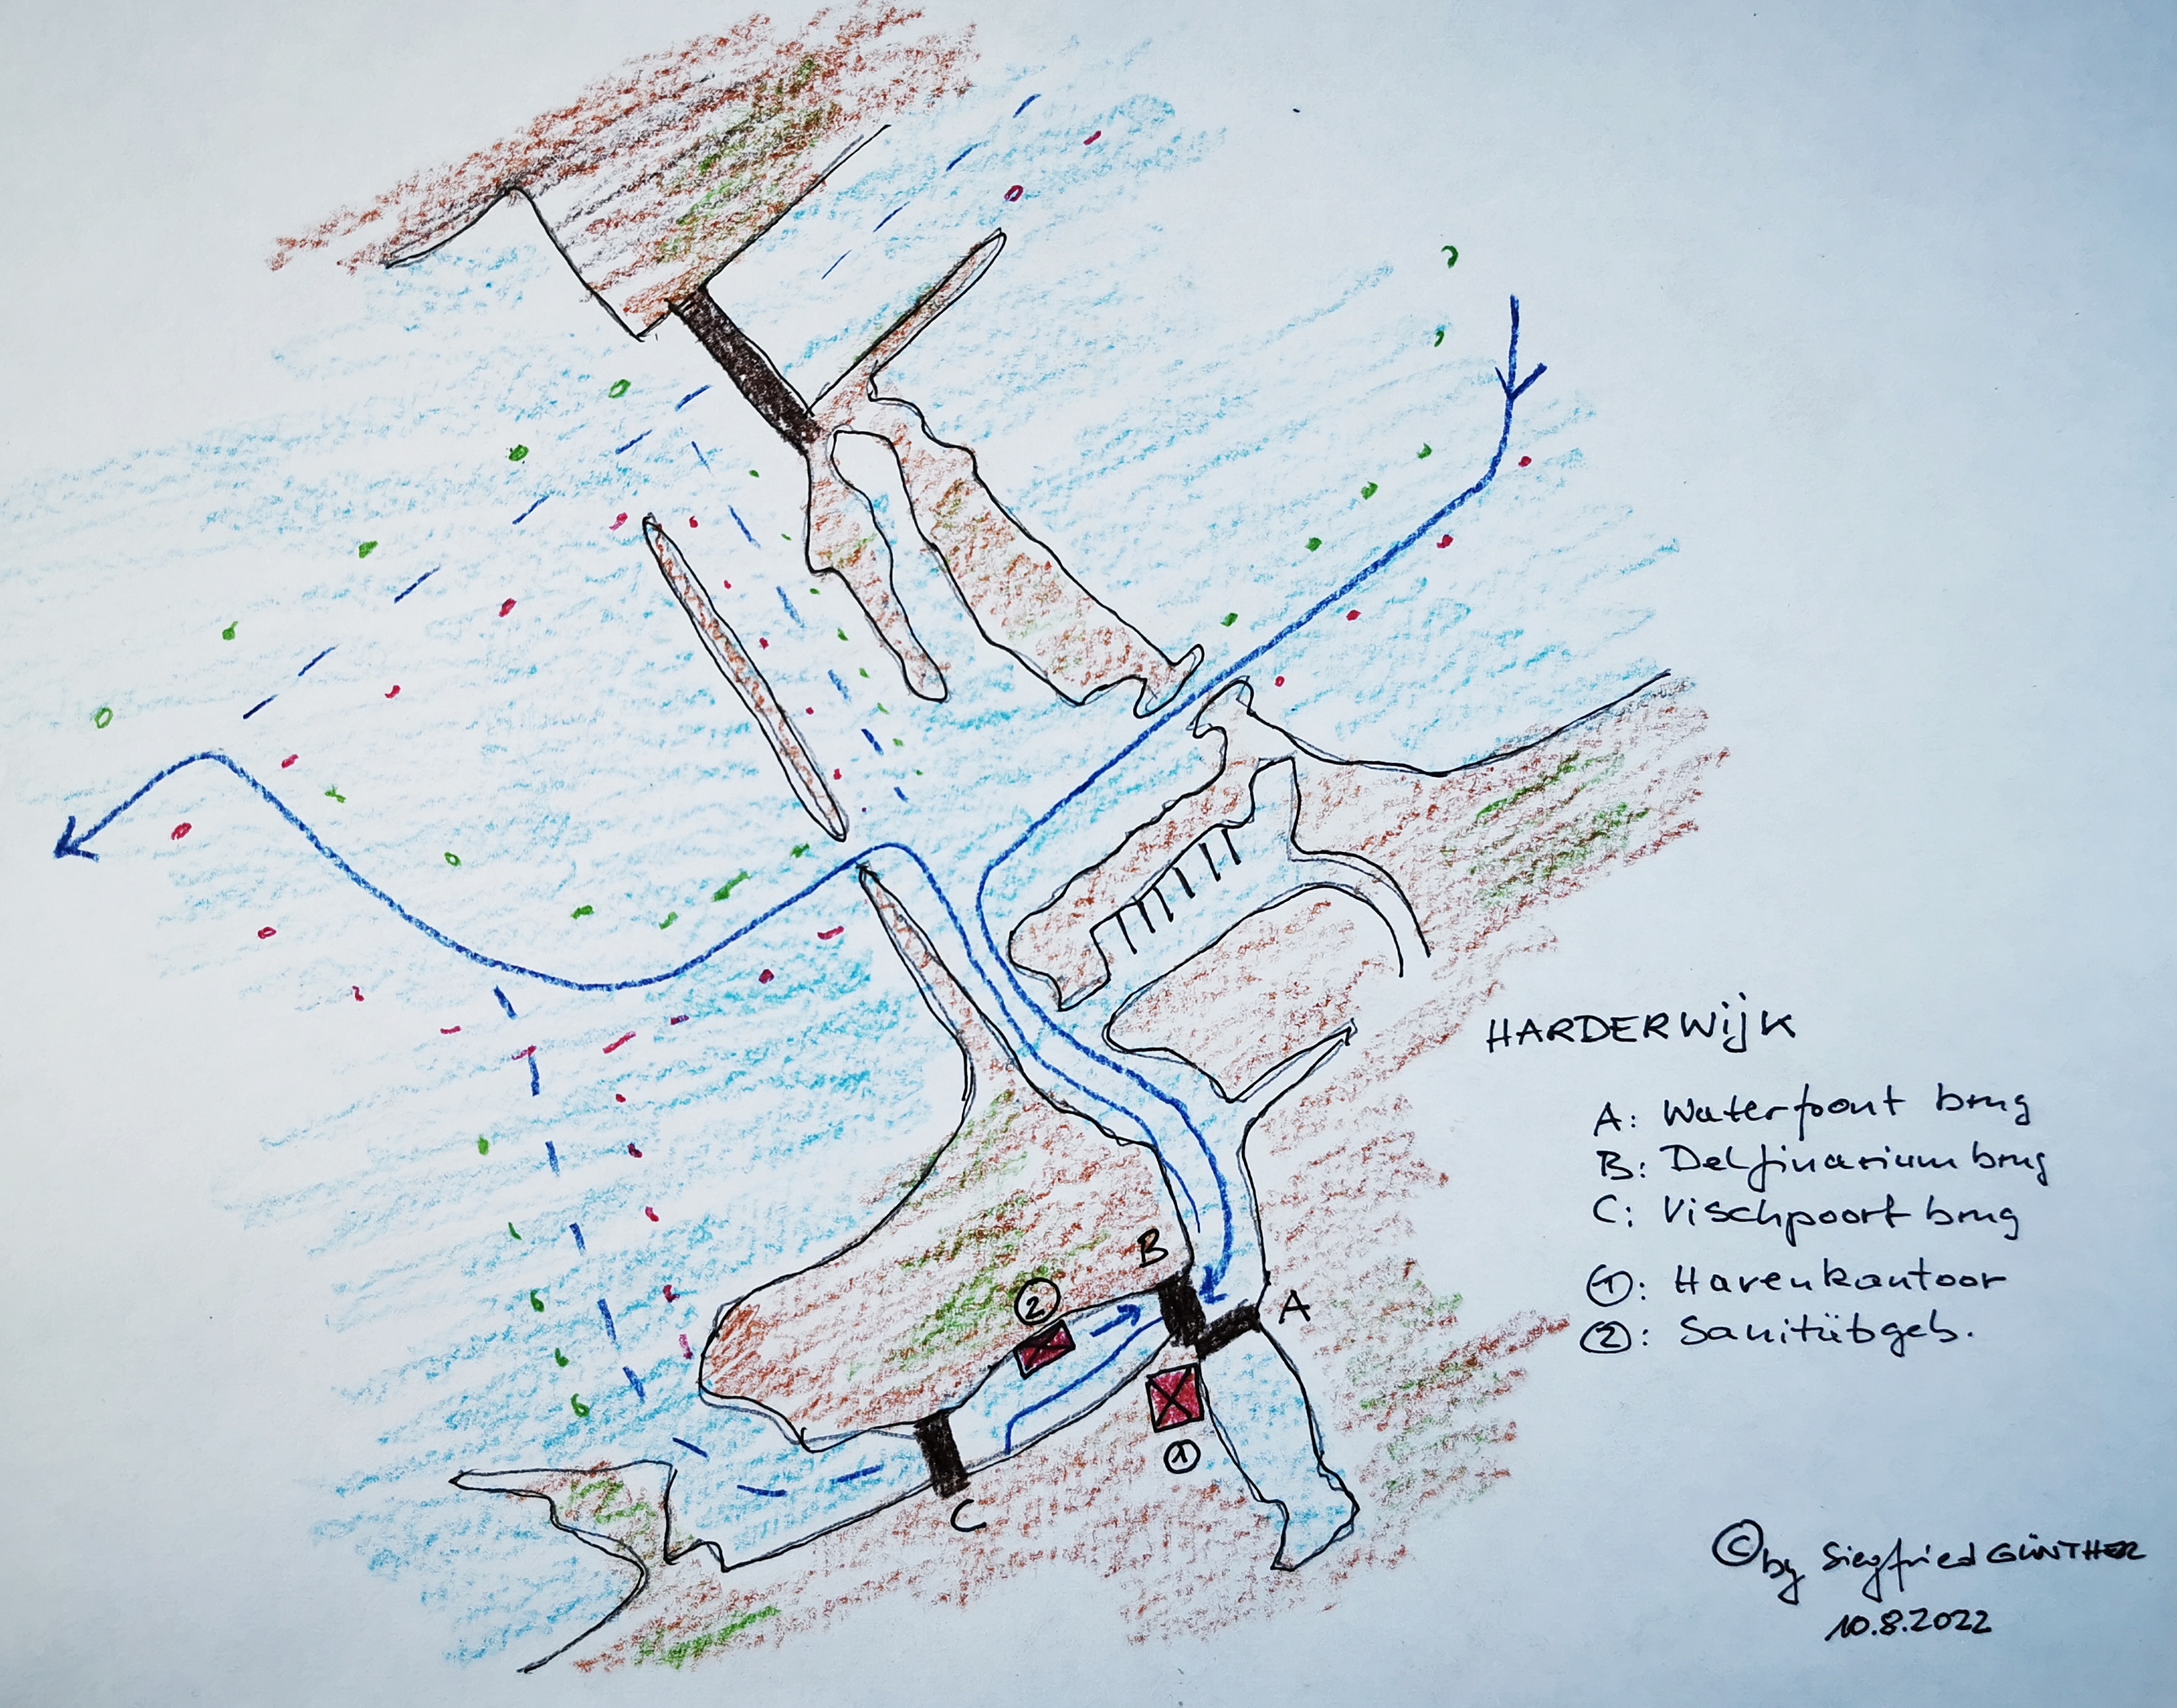 B
②
A
①
C
HARDERWIJK
A: Waterfront brug
B: Delfinarium brug
C: Vischpoort brug
①: Havenkantoor
②: Sanitätgeb.
© by Siegfried GÜNTHER
10.8.2022